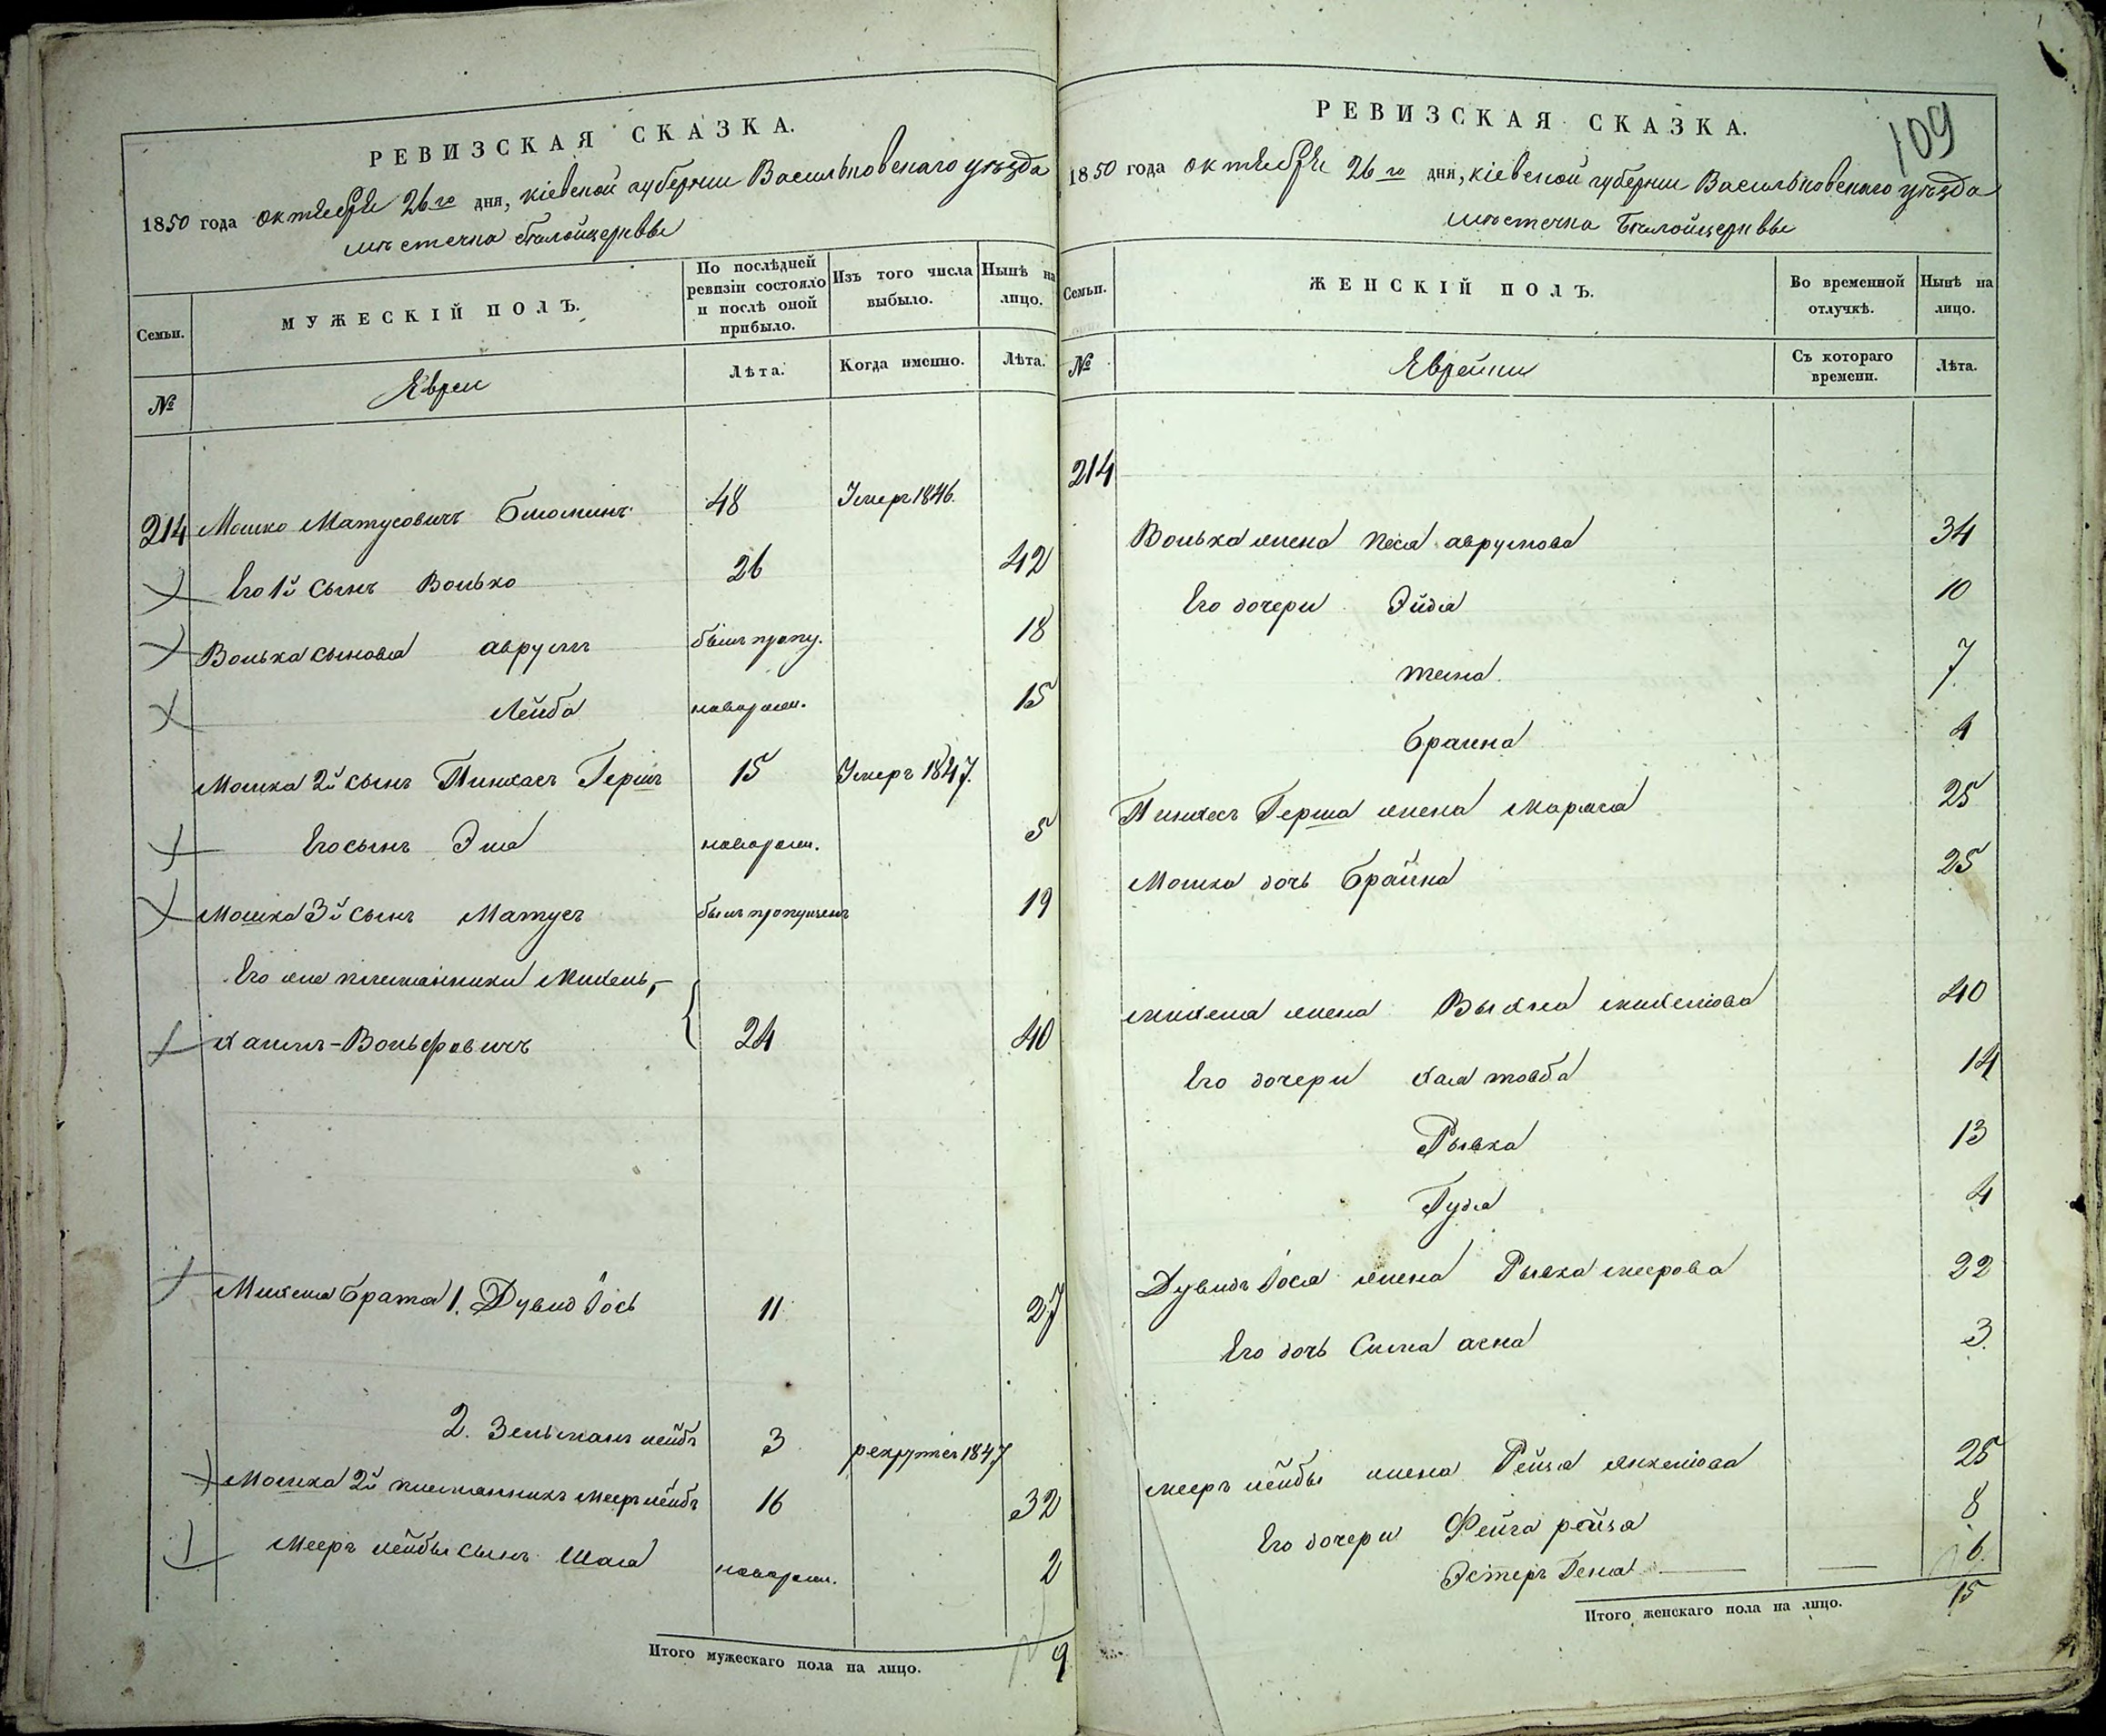 РЕВИЗСКАЯ СКАЗКА.
1850 года октября 26го дня, Кіевской губерніи Васильковскаго уѣзда
мѣстечка Бѣлойцерквы
Семьи.
МУЖЕСКІЙ ПОЛЪ.
По послѣдней ревизіи состояло и послѣ оной прибыло.
Изъ того числа выбыло.
Нынѣ на лицо.
№
Евреи
Лѣта.
Когда именно.
Лѣта.
214 Мошко Матусовичъ Блюминъ 48 Умеръ 1846.
Его 1й сынъ Волько 26 42
Волька сыновья Аврумъ былъ пропу. 18
Лейба новорожн. 15
Мошка 2й сынъ Пинхасъ Гершъ 15 Умеръ 1847.
Его сынъ Эля новорожн. 5
Мошка 3й сынъ Матусъ былъ пропущенъ 19
Его же племянники Михель,
Хаимъ-Вольфовичъ 24 40
Михеля брата 1. Дувид Іось 11 27
2. Зельманъ лейбъ 3 рекрутѣ 1847
Мошка 2й племянникъ Мееръ лейбъ 16 32
Мееръ лейбы сынъ Шая новорожн. 2
Итого мужескаго пола на лицо. 9
109
РЕВИЗСКАЯ СКАЗКА.
1850 года октября 26го дня, Кіевской губерніи Васильковскаго уѣзда
мѣстечка Бѣлойцерквы
Семьи.
ЖЕНСКІЙ ПОЛЪ.
Во временной отлучкѣ.
Нынѣ на лицо.
№
Еврейки
Съ котораго времени.
Лѣта.
214
Волька жена Песя Аврумова 34
Его дочери Эйдя 10
7
Браина 4
Пинхасъ Герша жена Маряся 25
Мошка дочь Брайна 25
Михеля жена Михелева 40
Его дочери Хая товба 14
Рывка 13
Гудя 4
Дувидъ Іося жена Рывка меерова 22
Его дочь Сима 3
Мееръ лейбы жена Рейзя Янкелева 25
Его дочери Фейга рейзя 8
Эстеръ Геня 6
Итого женскаго пола на лицо. 15